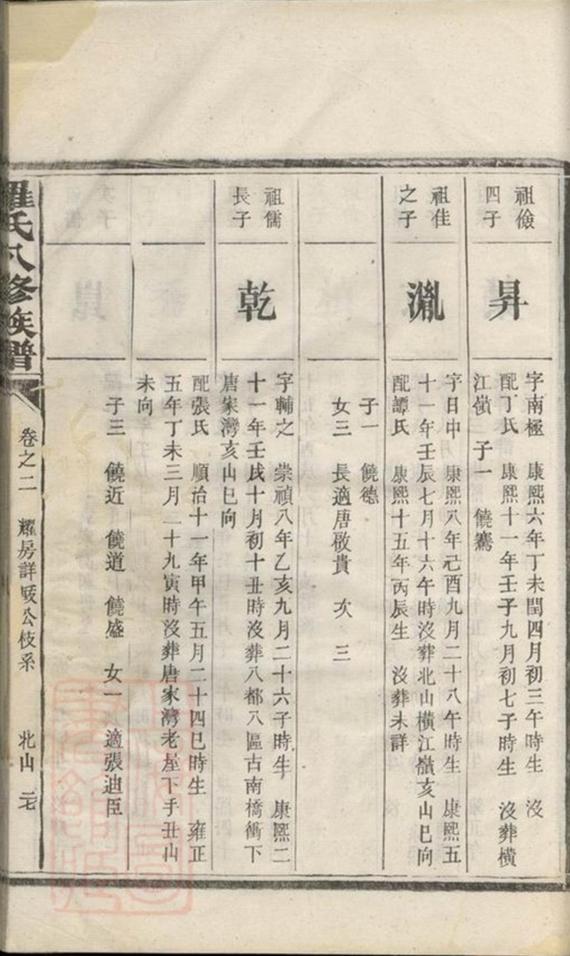 祖儉
四子
昇
字南極 康熙六年丁未閏四月初三午時生 沒
配丁氏 康熙十一年壬子九月初七子時生 沒葬橫
江嶺 子一 饒鶱
祖佳
之子
胤
字日中 康熙八年己酉九月二十八午時生 康熙五
十一年壬辰七月十六午時沒葬北山橫江嶺亥山巳向
配譚氏 康熙十五年丙辰生 沒葬未詳
子一 饒德
女三 長適唐敬貴 次 三
祖儒
長子
乾
字輔之 崇禎八年乙亥九月二十六子時生 康熙二
十一年壬戌十月初十丑時沒葬八都八區古南橋衝下
唐家灣亥山巳向
配張氏 順治十一年甲午五月二十四巳時生 雍正
五年丁未三月二十九寅時沒葬唐家灣老屋下手丑山
未向
子三 饒近 饒道 饒盛 女一 適張迪臣
羅氏八修族譜
卷之二 耀房詳
公枝系 北山